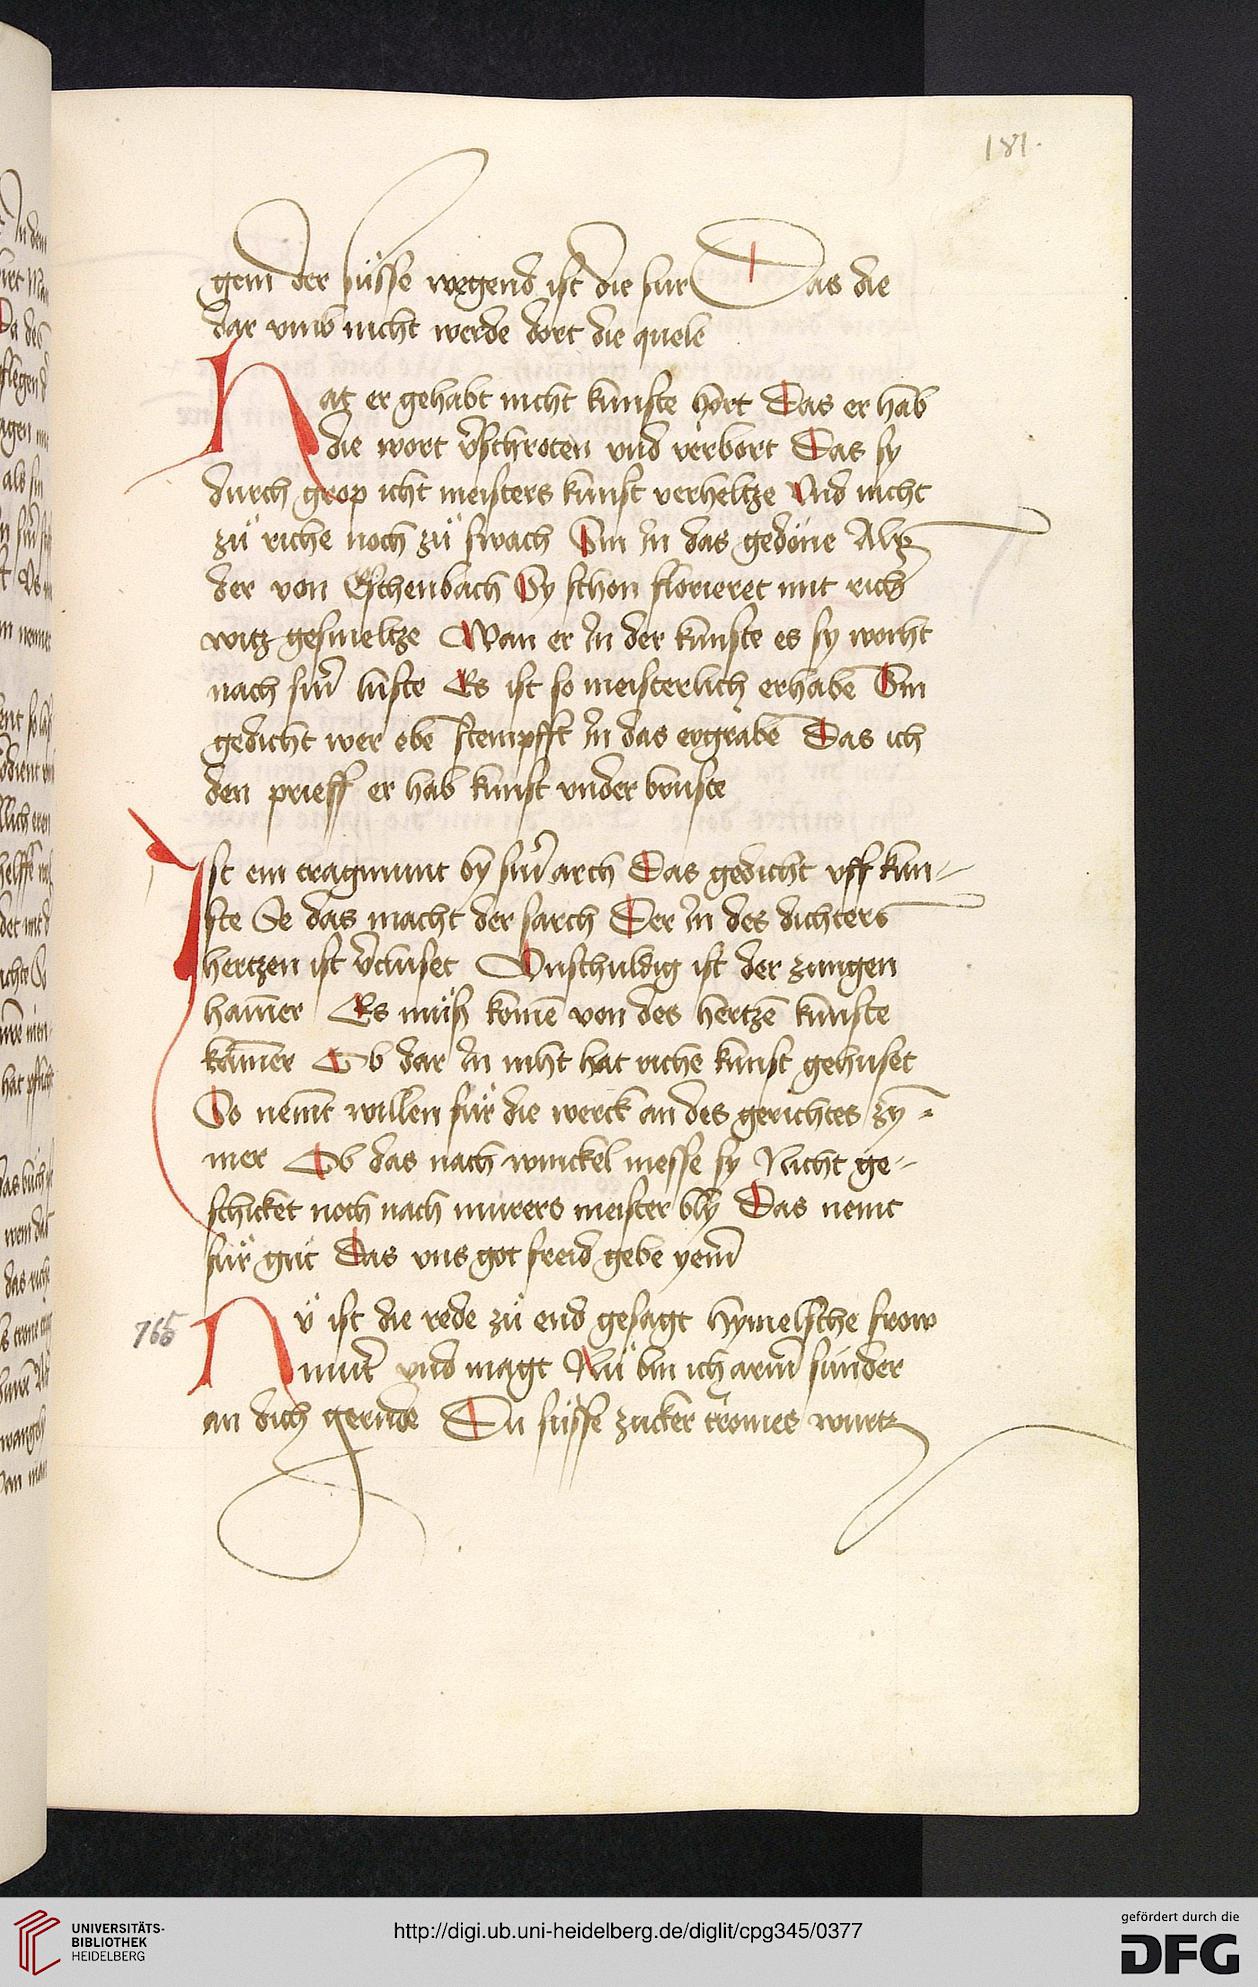 181.
gem der süsse wegend ist die sur Das die
dar vmb nicht werde dort die quele
Hat er gehabt nicht kunste hort Das er hab
die wort v̄schroten vnd verbort Das sy
durch grop icht meisters kunst verheltze Vnd nicht
zü riche noch zü swach Sin In das gedöne Als
der von Eschenbach Sy schon florieret mit rich̄
witz gesmeltze Wan er In der kunste es sy worcht
nach sin̄ luste Es ist so meisterlich erhabē Sin
gedicht wer ebē stempfft In das ergrabē Das ich
den prieff er hab kunst vnder bruste
Ist ein tragmunt by sin̄ arch Das gedicht vff kun-
ste Se das macht der sarch Der In des dichters
hertzen ist v̄cluset Vnschuldig ist der zungen
ham̄er Es müß komē von des hertzē kunste
kam̄er Ob dar In niht hat riche kunst gehuset
So nemt willen für die werck an des gerichtes zy-
mer Ob das nach winckel messe sy Nicht ge-
schicket noch nach murers meister bly Das nemt
für güt Das vns got freid gebe yem̄
765
Nü ist die rede zü end gesagt hymelsche frow
mut̄ vnd magt Nü bin ich arm̄ sünder
an dich gernde Du süsse zucker tromes wurtz
UNIVERSITÄTS-
BIBLIOTHEK
HEIDELBERG
http://digi.ub.uni-heidelberg.de/diglit/cpg345/0377
gefördert durch die
DFG